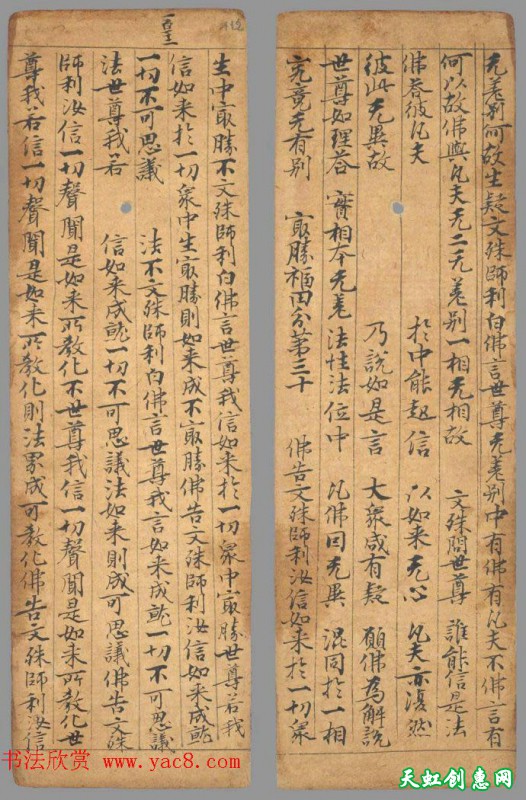 无差别何故生疑文殊師利白佛言世尊无差别中有佛有凡夫不佛言有
何以故佛與凡夫无二无差别一相无相故 文殊問世尊 誰能信是法
佛荅彼凡夫 於中能起信 以如来无心 凡夫亦復然
彼此无異故 乃說如是言 大衆咸有疑 願佛為解說
世尊如理荅 實相本无差 法性法位中 凡佛因无異 混同於一相
究竟无有别 㝡勝福田分第三十 佛告文殊師利汝信如来於一切衆
生中㝡勝不文殊師利白佛言世尊我信如来於一切衆中㝡勝世尊若我
信如来於一切衆中生㝡勝則如来成不㝡勝佛告文殊師利汝信如来成就
一切不可思議 法不文殊師利白佛言世尊我言如来成就一切不可思議
法世尊我若 信如来成就一切不可思議法如来則成可思議佛告文殊
師利汝信一切聲聞是如来所教化不世尊我信一切聲聞是如来所教化世
尊我若信一切聲聞是如来所教化則法界成可教化佛告文殊師利汝信
书法欣赏 www.yac8.com
天虹创惠网